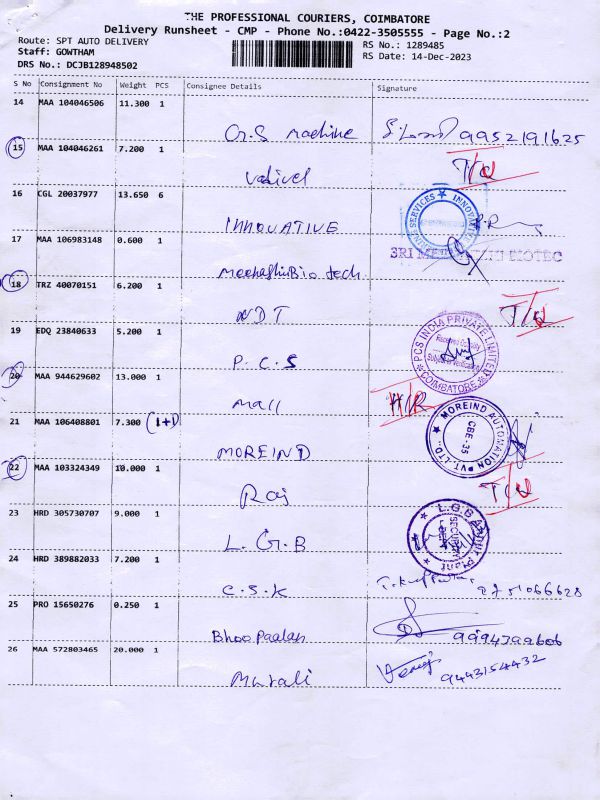 THE PROFESSIONAL COURIERS, COIMBATORE
Delivery Runsheet - CMP - Phone No.:0422-3505555 - Page No.:2
Route: SPT AUTO DELIVERY
RS No.: 1289485
Staff: GOWTHAM
RS Date: 14-Dec-2023
DRS No.: DCJB128948502
S No Consignment No Weight PCS Consignee Details Signature
14 MAA 104046506 11.300 1
G.S machine 9952191625
15 MAA 104046261 7.200 1 T/Q
Vadivel
16 CGL 20037977 13.650 6
INNOVATIVE
17 MAA 106983148 0.600 1
MeenashiBio tech
18 TRZ 40070151 6.200 1 T/Q
NDT
19 EDQ 23840633 5.200 1 PCS INDIA PRIVATE LIMITED COIMBATORE
P.C.S
20 MAA 944629602 13.000 1 H/R
Mall
21 MAA 106408801 7.300 (1+1) MOREIND AUTOMATION PVT. LTD CBE-35
MOREIND
22 MAA 103324349 10.000 1 T/Q
Raj
23 HRD 305730707 9.000 1 SECURITY
L.G.B
24 HRD 389882033 7.200 1
C.S.K
25 PRO 15650276 0.250 1
Bhoopaalan
26 MAA 572803465 20.000 1 9443154432
Murali